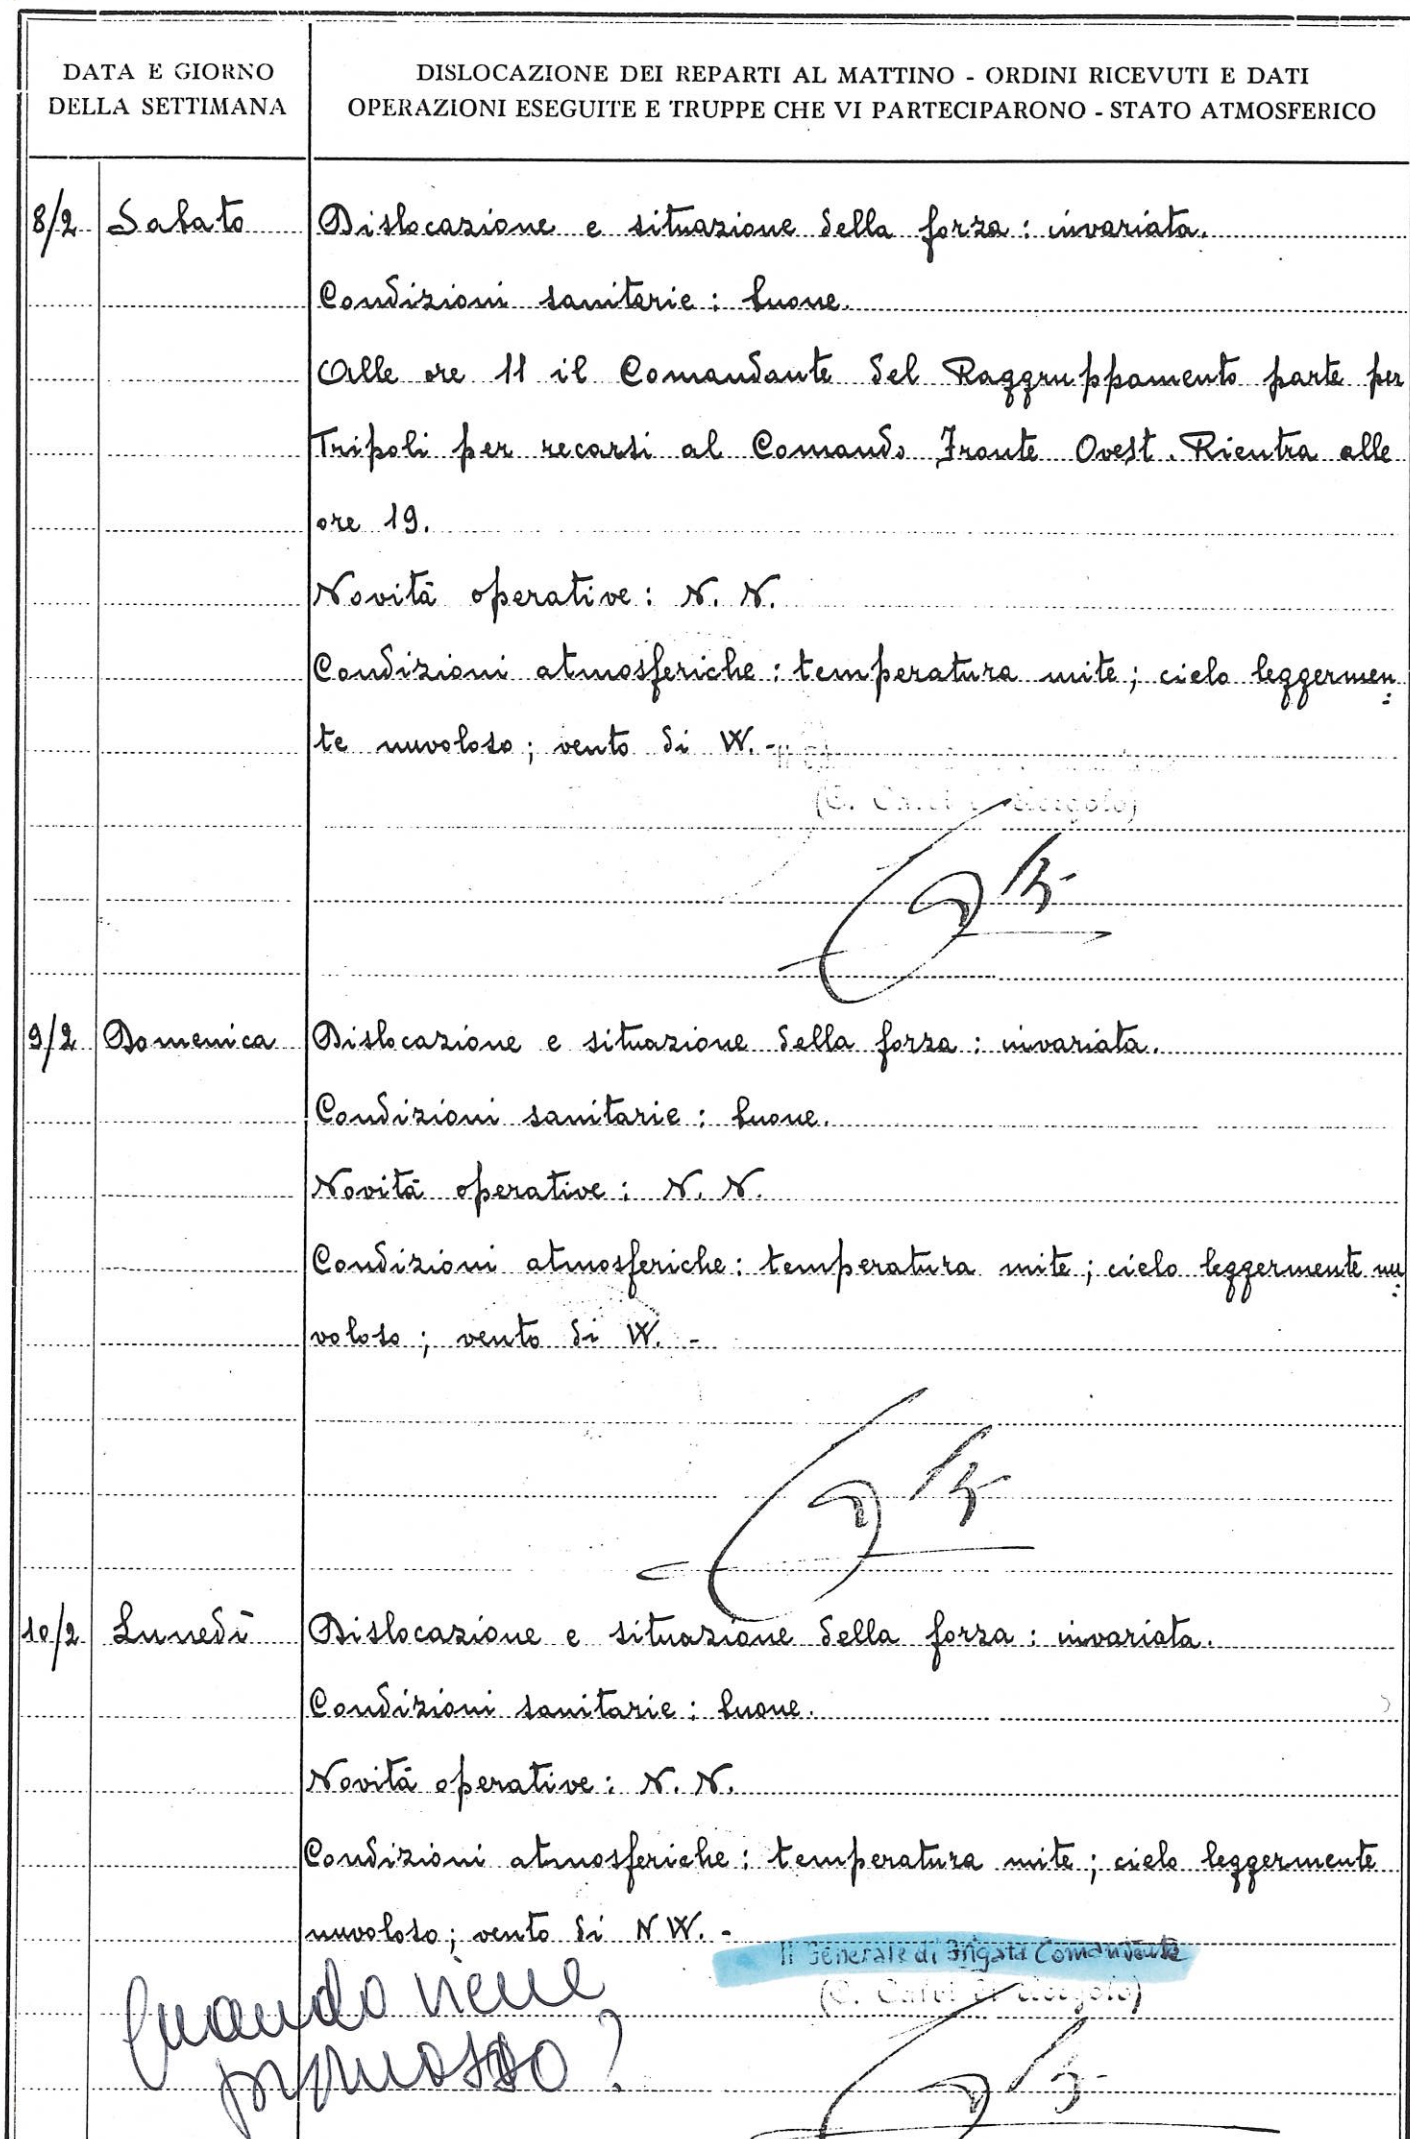 DATA E GIORNO
DELLA SETTIMANA
DISLOCAZIONE DEI REPARTI AL MATTINO - ORDINI RICEVUTI E DATI
OPERAZIONI ESEGUITE E TRUPPE CHE VI PARTECIPARONO - STATO ATMOSFERICO
8/2 Sabato Dislocazione e situazione della forza : invariata.
Condizioni sanitarie : buone.
Alle ore 11 il Comandante del Raggruppamento parte per
Tripoli per recarsi al Comando Fronte Ovest. Rientra alle
ore 19.
Novità operative : N. N.
Condizioni atmosferiche : temperatura mite ; cielo leggermen=
te nuvoloso ; vento di W. -
9/2 Domenica Dislocazione e situazione della forza : invariata.
Condizioni sanitarie : buone.
Novità operative : N. N.
Condizioni atmosferiche : temperatura mite ; cielo leggermente nu=
voloso ; vento di W. -
10/2 Lunedì Dislocazione e situazione della forza : invariata.
Condizioni sanitarie : buone.
Novità operative : N. N.
Condizioni atmosferiche : temperatura mite ; cielo leggermente
nuvoloso ; vento di NW. -
Il Generale di Brigata Comandante
(C. Calvi di Bergolo)
Quando viene
promosso ?